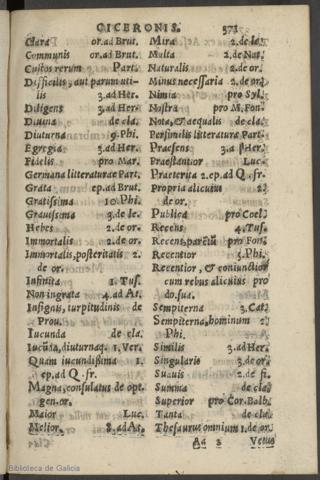 CICERONIS. 371
Clara or.ad Brut.
Communis or.ad Brut.
Custos rerum Part.
Difficilis, aut parum uti-
lis 3.ad Her.
Diligens 3.ad Her.
Diuina de cla.
Diuturna 9.Phi.
Egregia 3.ad Her.
Fidelis pro Mar.
Germana litteraturæ Part.
Grata ep.ad Brut.
Gratissima 10.Phi.
Grauissima 3.de le.
Hebes 2.de or.
Immortalis 2.de or.
Immortalis, posteritatis 2.
de or.
Infinita 1. Tus.
Non ingrata 4.ad At.
Insignis, turpitudinis de
Prou.
Iucunda de cla.
Iucūda, diuturnaq. 1.Ver.
Quam iucundissima 1.
ep.ad Q.fr.
Magna, consulatus de opt.
gen.or.
Maior Luc.
Melior. 8.ad At.
Mira 2.de le.
Multa 2.de Nat.
Naturalis 2.de or.
Minus necessaria 2.de or.
Nimia pro Syl.
Nostra pro M.Fon.
Nota, & æqualis de cla.
Persimilis litteraturæ Part.
Præsens 3.a Her.
Præstantior Luc.
Præterita 2.ep.ad Q.fr.
Propria alicuius 2.
de or.
Publica pro Cœl.
Recens 4.Tus.
Recens, parētū pro Fon.
Recentior 3.Phi.
Recentior, & coniunctior
cum rebus alicuius pro
do.sua.
Sempiterna 3.Cat.
Sempiterna, hominum 2.
Phi.
Similis 3.ad Her.
Singularis 3.de or.
Suauis 2.de fi.
Summa de cla.
Superior pro Cor.Balb.
Tanta de cla.
Thesaurus omnium 1.de or.
Aa 2 Vetus
Biblioteca de Galicia